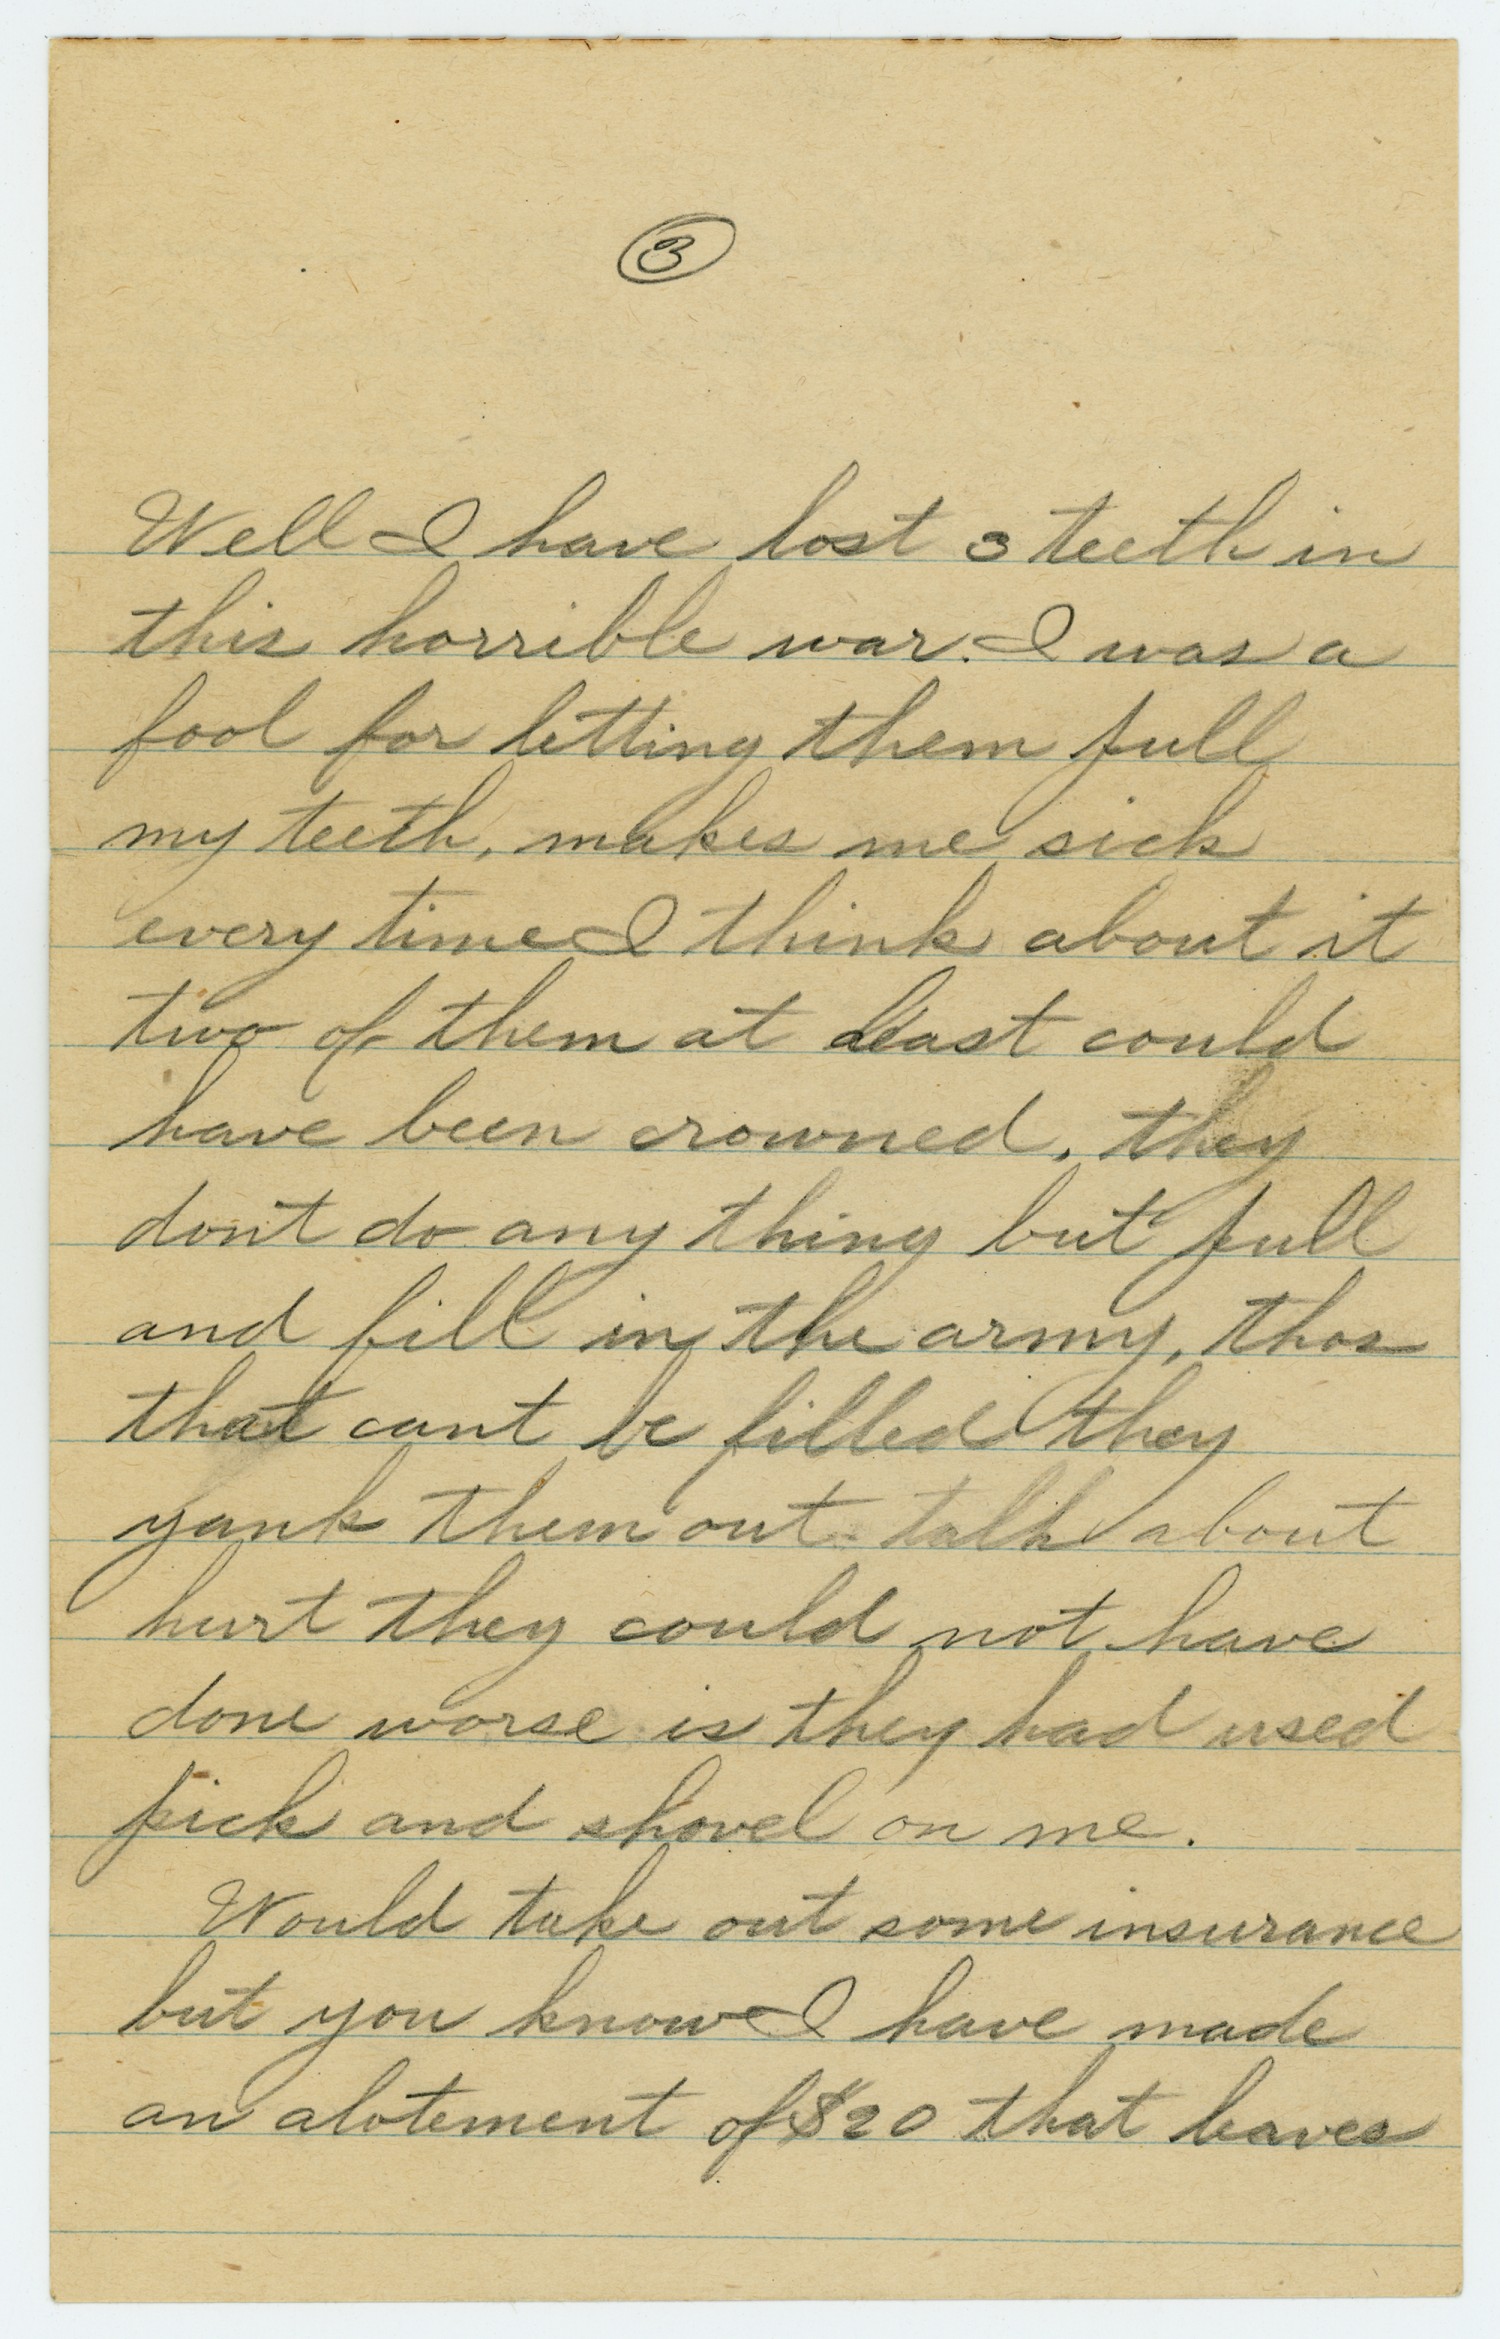 3
Well I have lost 3 teeth in
this horrible war. I was a
fool for letting them pull
my teeth, makes me sick
every time I think about it
two of them at least could
have been crowned. they
dont do any thing but pull
and fill in the army, thos
that cant be filled they
yank them out talk about
hurt they could not have
done worse is they had used
pick and shovel on me.
Would take out some insurance
but you know I have made
an alotement of $20 that leaves